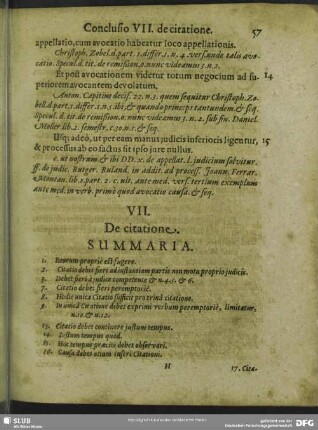 Conclusio VII. de citatione. 57
appellatio, cum avocatio habeatur loco appellationis.
Christoph. Zobel. d. part. 1. differ. 1. n. 4. vers. unde talis avo-
catio. Specul. d. tit. de remission. 0. nunc videamus 3. n. 2.
Et post avocationem videtur totum negocium ad su- 14
periorem avocantem devolutum.
Anton. Capitius decis. 22. n. 1. quem sequitur Christoph. Zo-
bel. d. part. 1. differ. 1. n. 5. ibi, & quando princeps tantundem. & seq.
Specul. d. tit. de remission. 0. nunc videamus 3. n. 2. sub fin. Daniel.
Moller lib. 2. semestr. c. 30. n. 1. & seq.
Usq; adeò, ut per eam manus judicis inferioris ligentur, 15
& processus ab eo factus sit ipso jure nullus.
c. ut nostrum & ibi DD. x. de appellat. l. judicium solvitur.
ff. de judic. Rutger. Ruland. in addit. ad process. Joann. Ferrar.
Montan. lib. 1. part. 2. c. ult. ante med. vers. tertium exemplum
ante med. in verb. primò quod avocatio causa. & seq.
VII.
De citatione.
SUMMARIA.
1. Reorum propriè est fugere.
2. Citatio debet fieri ad instantiam partis non motu proprio judicis.
3. Debet fieri à judice competente & n. 4. 5. & 6.
7. Citatio debet fieri peremptoriè.
8. Hodie unica Citatio sufficit pro trina citatione.
9. In unica Citatione debet exprimi verbum peremptoriè, limitatur,
n. 10. & n. 12.
13. Citatio debet continere justum tempus.
14. Justum tempus quod.
15. Hoc tempus gracise debet observari.
16. Causa debet etiam inseri Citationi.
H 17. Cita-
SLUB
DFG